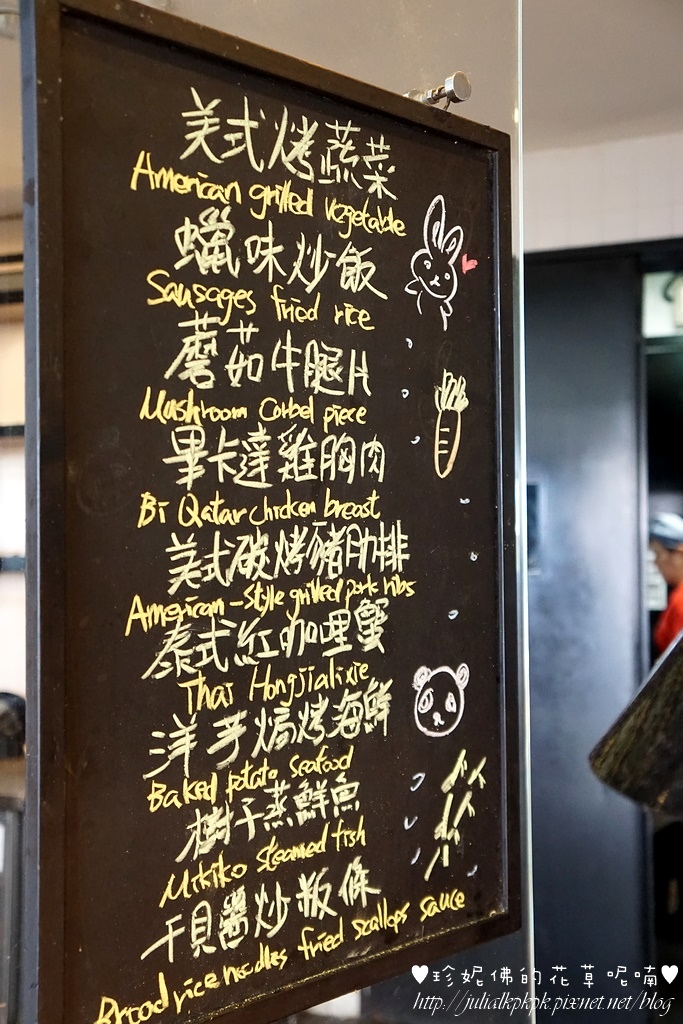 美式烤蔬菜
American grilled vegetable
蠟味炒飯
Sausages fried rice
蘑茹牛腿片
Mushroom Corbel piece
畢卡達雞胸肉
Bi Qatar chicken breast
美式碳烤豬肋排
American-style grilled pork ribs
泰式紅咖哩蟹
Thai Hongjialixie
洋芋焗烤海鮮
Baked potato seafood
樹子蒸鮮魚
Mikiko steamed fish
干貝醬炒粄條
Broad rice noodles fried scallops sauce
♥珍妮佛的花草呢喃♥
http://julialkpkpk.pixnet.net/blog